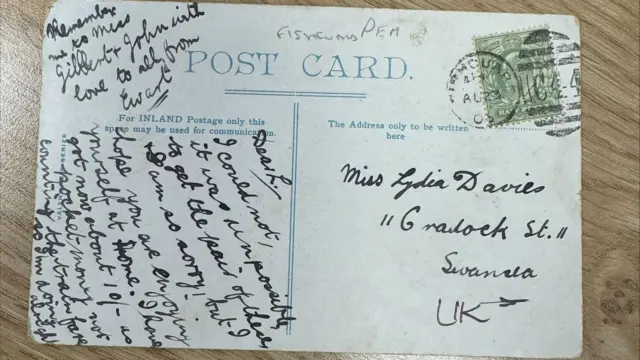 Remember
me to Miss
Gilbert & John with
love to all, from
Ewart
FISHGUARD PEM
POST CARD.
FISHGUARD
AU 3
For INLAND Postage only this
space may be used for communication.
The Address only to be written
here
Dear L.
I could not,
it was impossible
to get the pair of these
I am so sorry! but I
hope you are enjoying
yourself at Home. I have
got now about 10/- as
pocket-money not
counting the train fare
so I'm doing
alright
Miss Lydia Davies
"Cradock St."
Swansea
UK